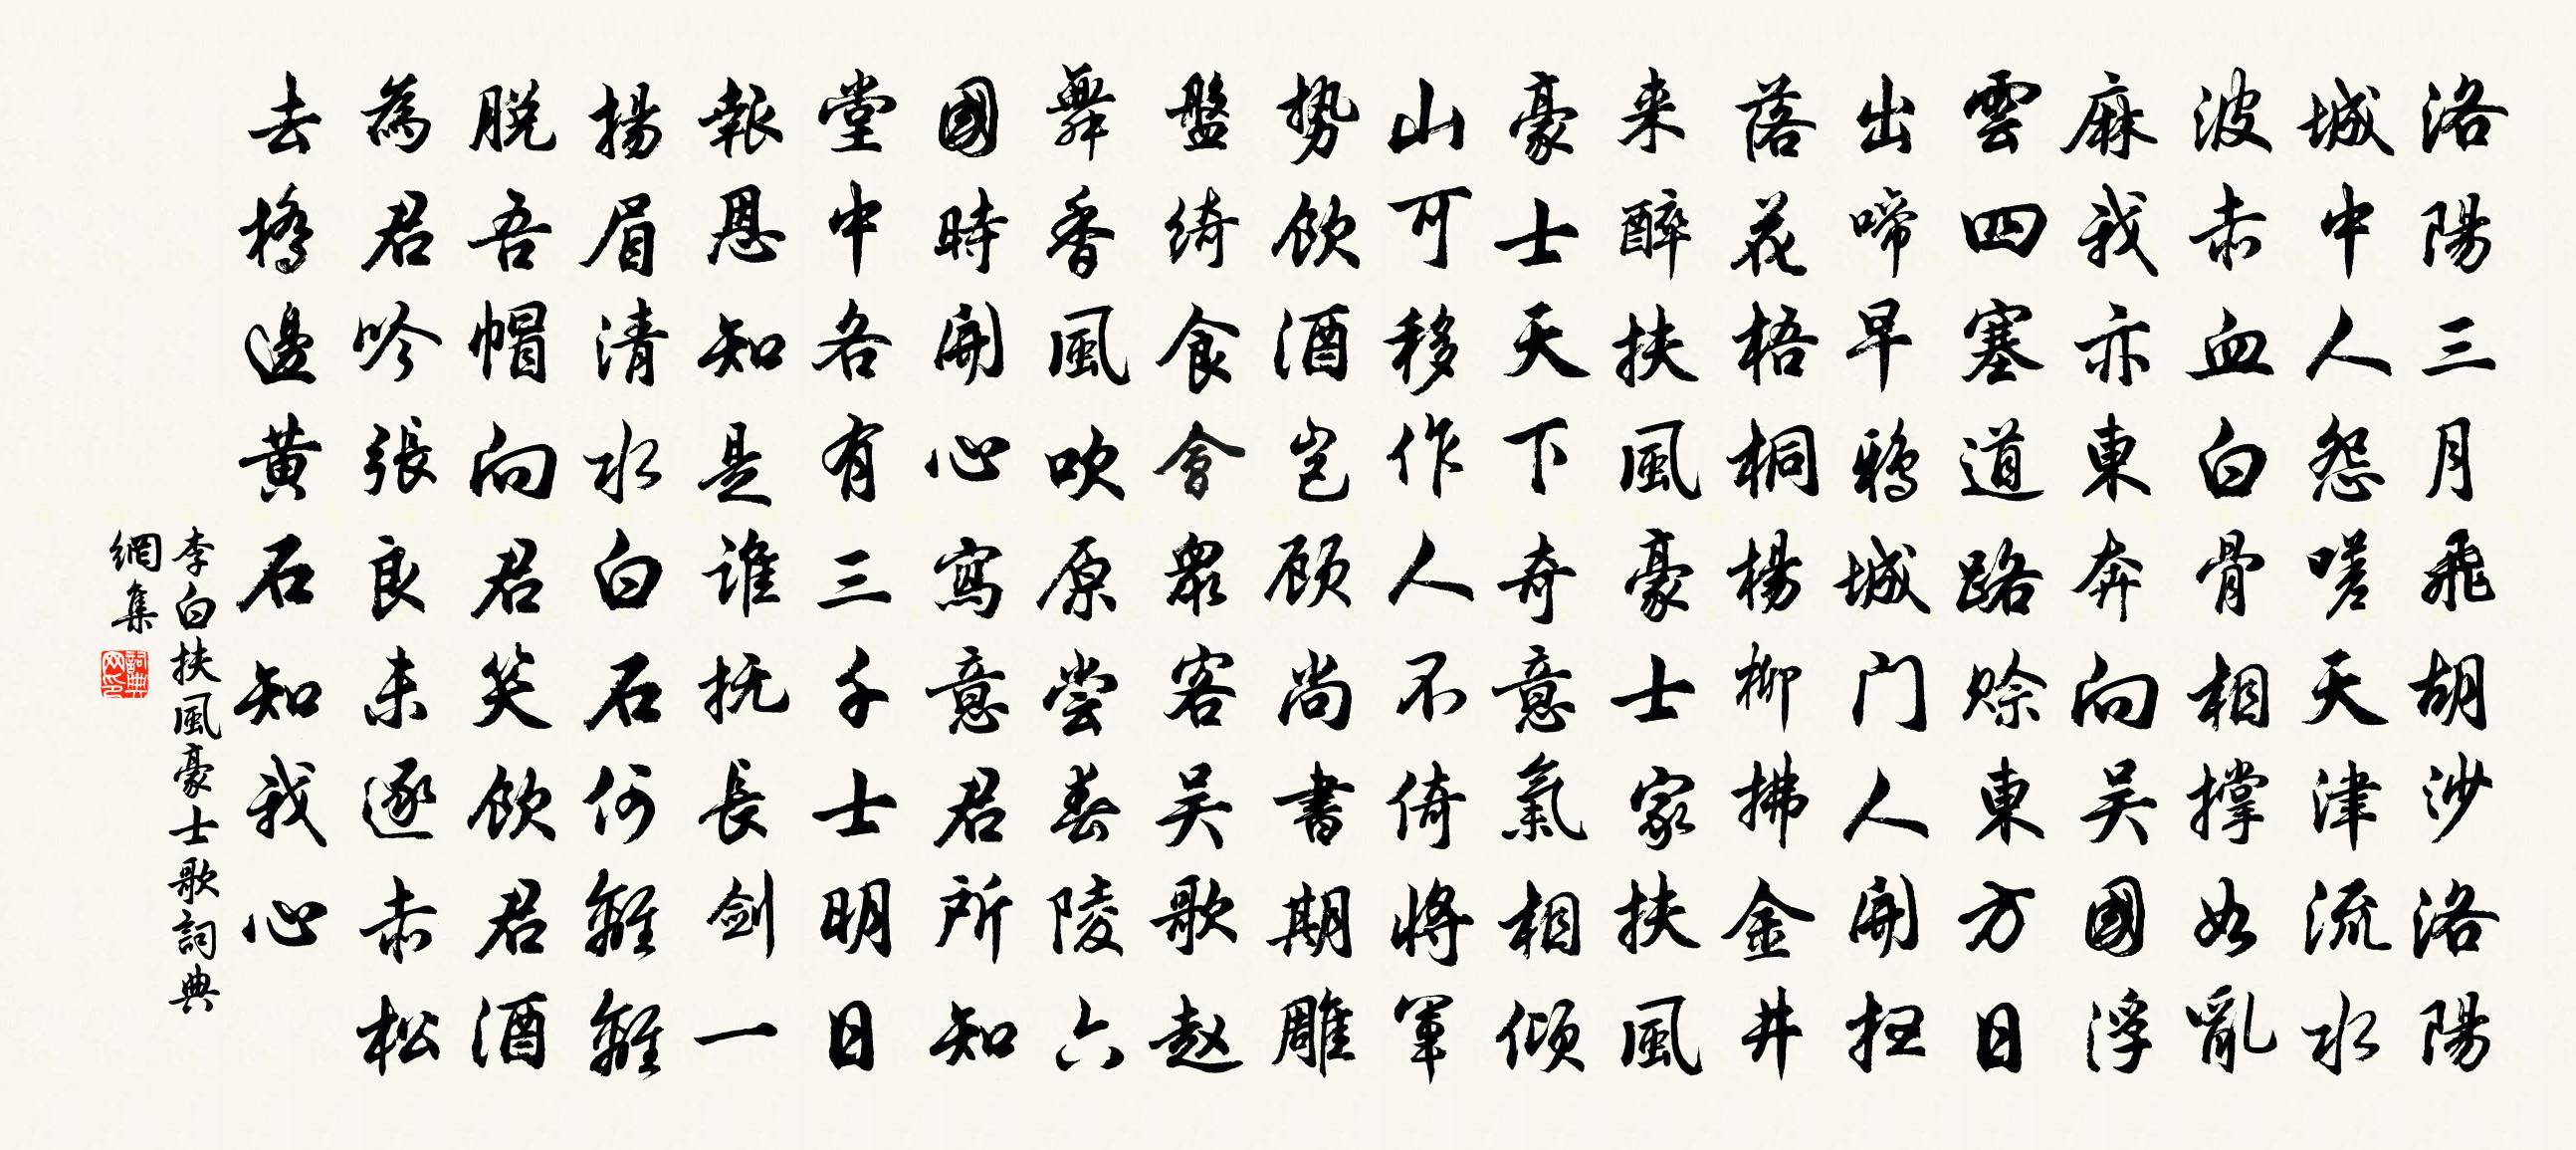 洛陽三月飛胡沙洛陽
城中人怨嗟天津流水
波赤血白骨相撐如亂
麻我亦東奔向吴國浮
雲四塞道路賒東方日
出啼早鴉城门人開掃
落花梧桐楊柳拂金井
来醉扶風豪士家扶風
豪士天下奇意氣相傾
山可移作人不倚將軍
势飲酒豈顾尚書期雕
盤綺食會眾客吴歌赵
舞香風吹原尝春陵六
國時開心寫意君所知
堂中各有三千士明日
報恩知是谁抚長剑一
揚眉清水白石何離離
脱吾帽向君笑飲君酒
為君吟張良未逐赤松
去橋邊黄石知我心
李白扶風豪士歌詞典
網集
詞典网印